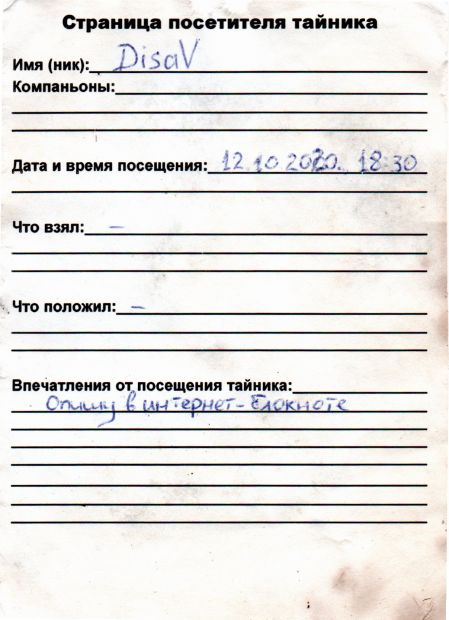 Страница посетителя тайника
Имя (ник): DisaV
Компаньоны:
Дата и время посещения: 12.10.2020. 18:30
Что взял: –
Что положил: –
Впечатления от посещения тайника:
Опишу в интернет-блокноте